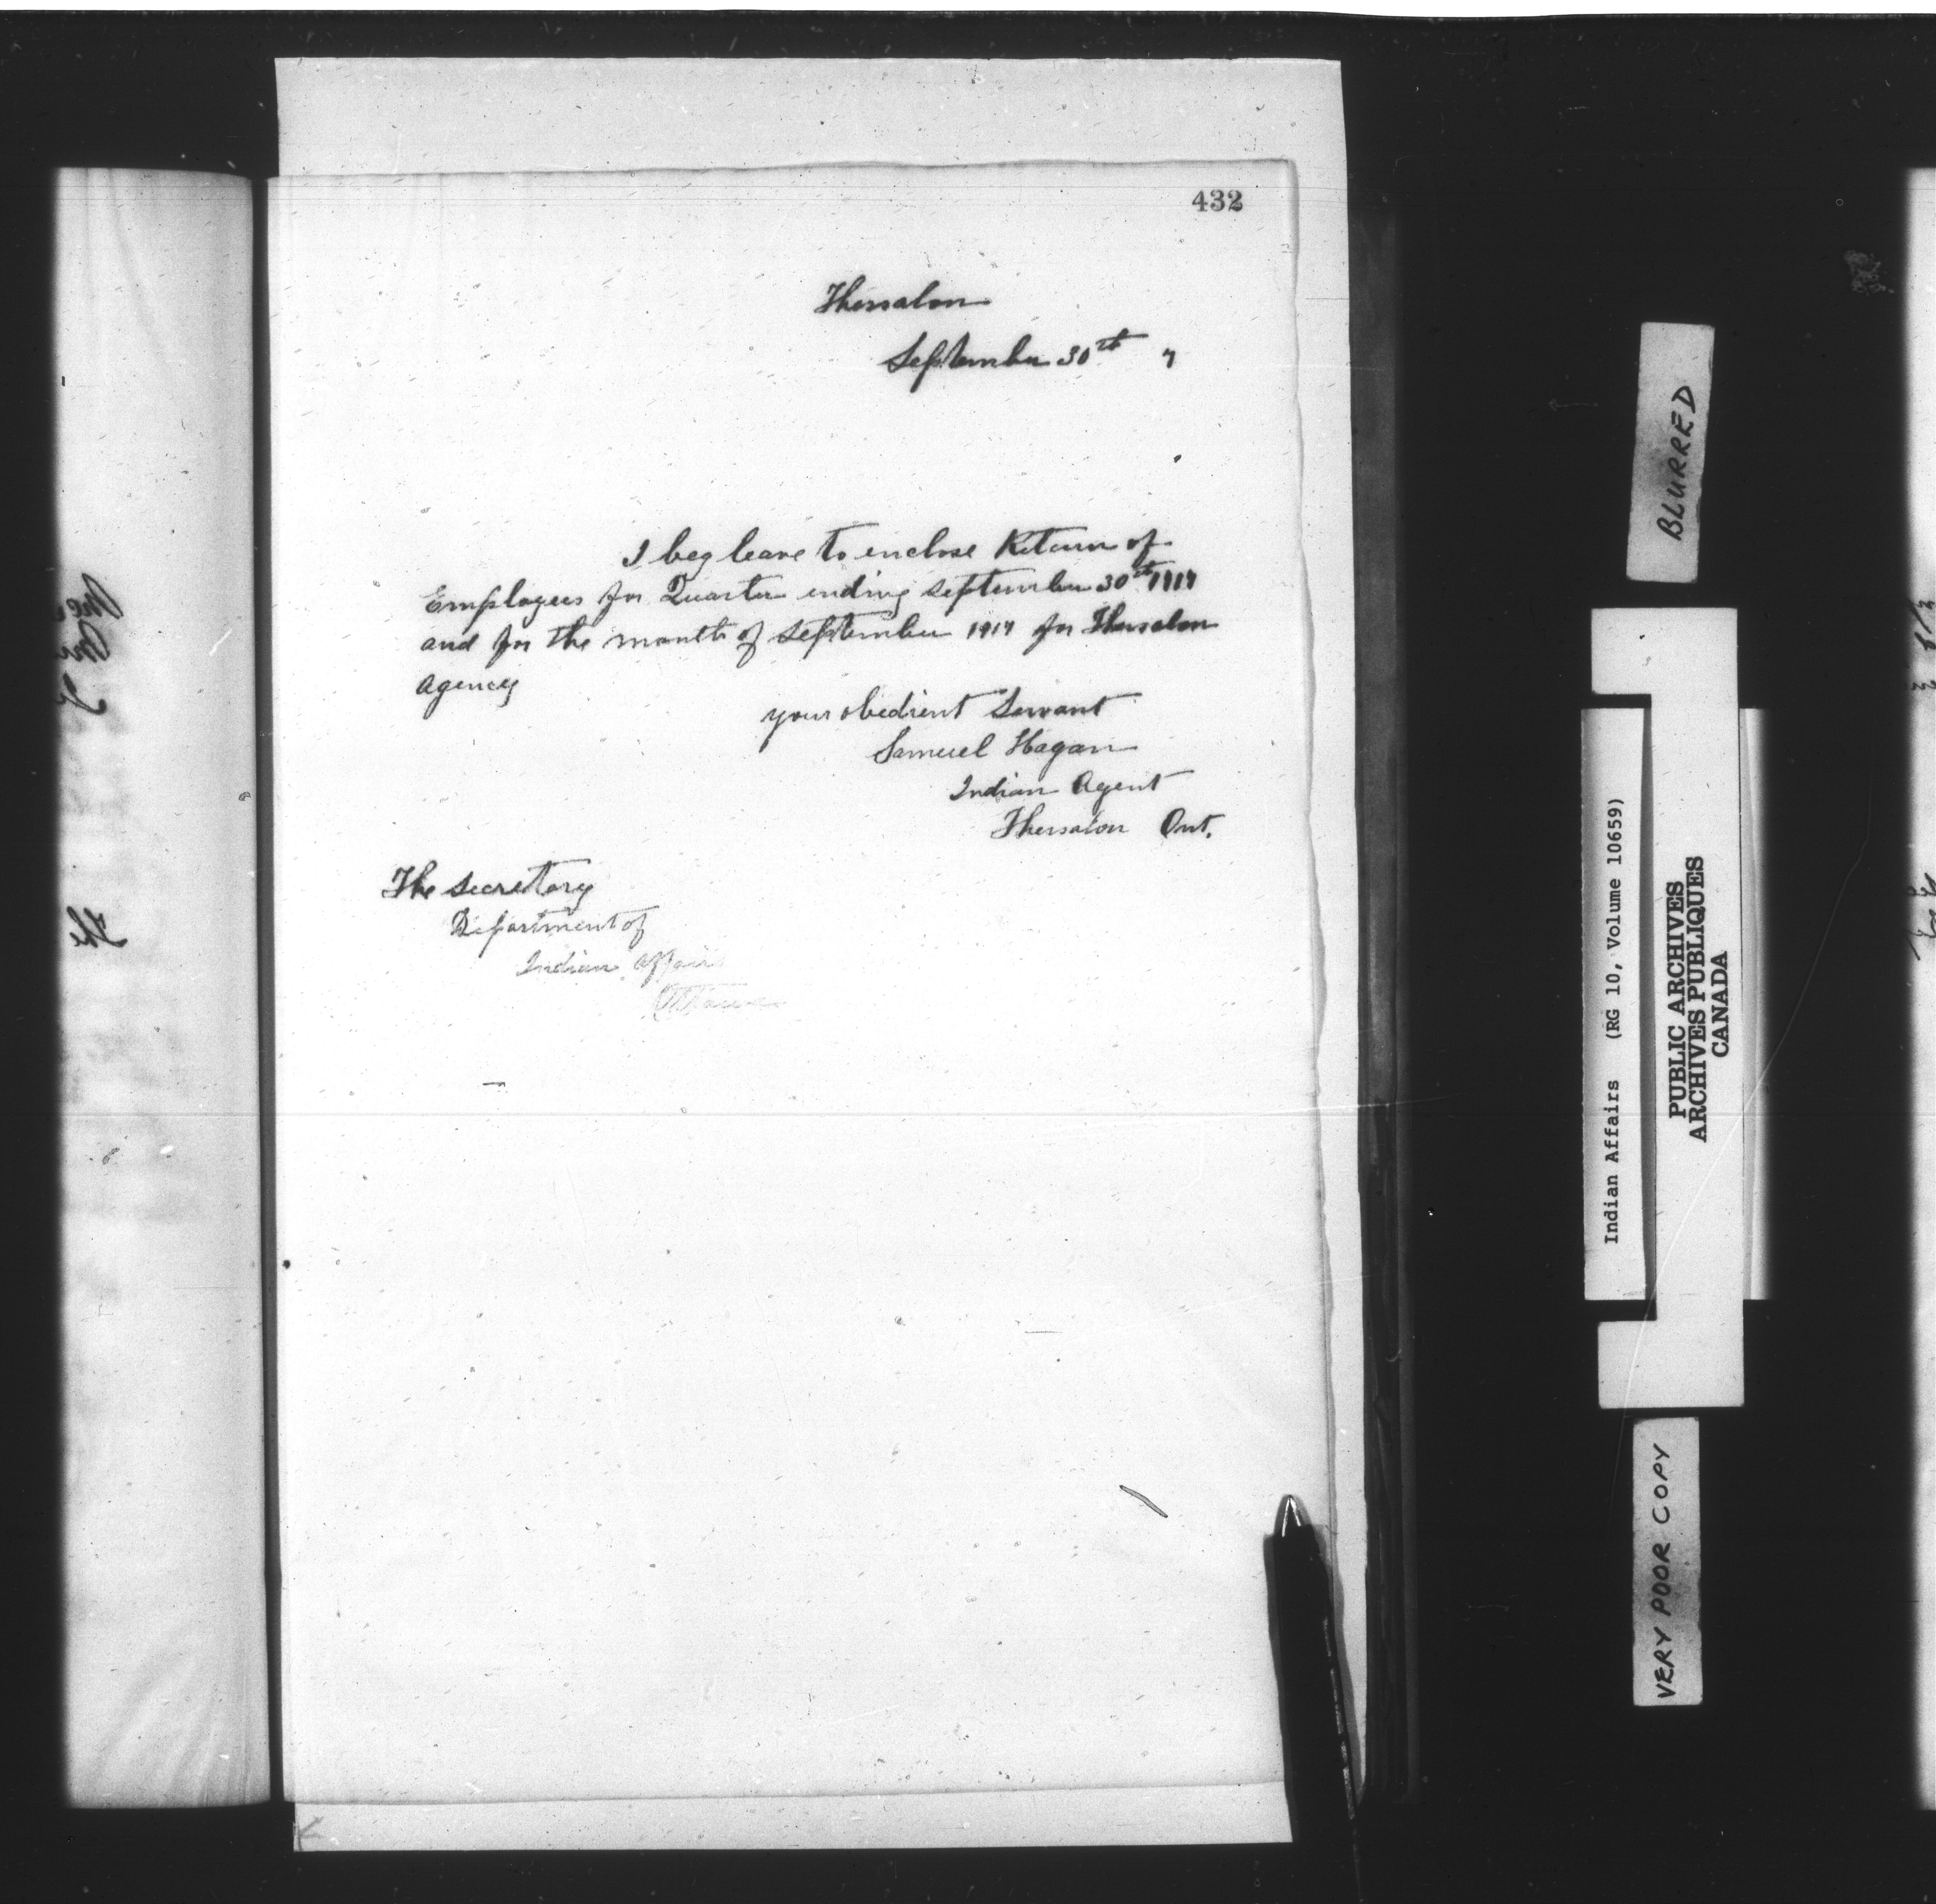 432
Thessalon
September 30th 7
I beg leave to enclose Return of
Employees for Quarter ending September 30th 1917
and for the month of September 1917 for Thessalon
Agency
your obedient Servant
Samuel Hagan
Indian Agent
Thessalon Ont.
The Secretary
Department of
Indian Affairs
Ottawa
The
BLURRED
Indian Affairs (RG 10, Volume 10659)
PUBLIC ARCHIVES
ARCHIVES PUBLIQUES
CANADA
VERY POOR COPY